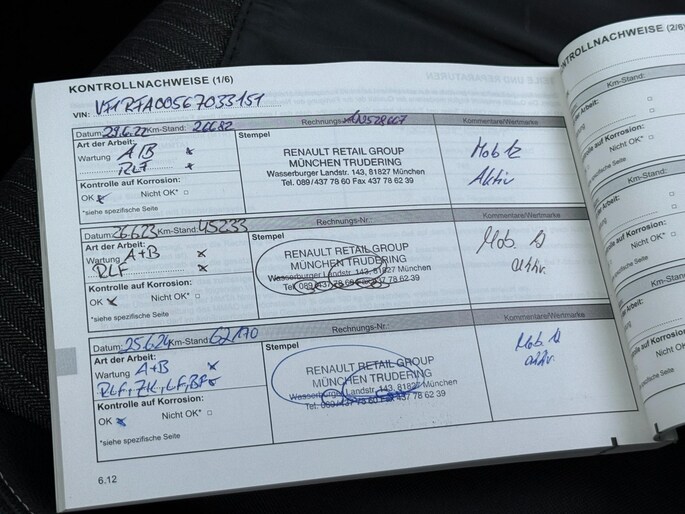 KONTROLLNACHWEISE (1/6)
VIN: VF1RJA00567033151
Datum: 29.6.22 Km-Stand: 26682 Rechnungs-Nr.: Kommentare/Wertmarke
Art der Arbeit:
Wartung A/B x
RLF x
Kontrolle auf Korrosion:
OK x Nicht OK* □
*siehe spezifische Seite
Stempel
RENAULT RETAIL GROUP
MÜNCHEN TRUDERING
Wasserburger Landstr. 143, 81827 München
Tel. 089/437 78 60 Fax 437 78 62 39
Mobz
Aktiv
Datum: 26.6.23 Km-Stand: 45233 Rechnungs-Nr.: Kommentare/Wertmarke
Art der Arbeit:
Wartung A+B x
RLF x
Kontrolle auf Korrosion:
OK x Nicht OK* □
*siehe spezifische Seite
Stempel
RENAULT RETAIL GROUP
MÜNCHEN TRUDERING
Wasserburger Landstr. 143, 81827 München
Tel. 089/437 78 60 Fax 437 78 62 39
Mob.
aktiv.
Datum: 25.6.24 Km-Stand: 62170 Rechnungs-Nr.: Kommentare/Wertmarke
Art der Arbeit:
Wartung A+B x
RLF, ZK, LF, BF x
Kontrolle auf Korrosion:
OK x Nicht OK* □
*siehe spezifische Seite
Stempel
RENAULT RETAIL GROUP
MÜNCHEN TRUDERING
Wasserburger Landstr. 143, 81827 München
Tel. 089/437 78 60 Fax 437 78 62 39
Mob.
aktiv.
6.12
KONTROLLNACHWEISE (2/6)
Km-Stand:
Arbeit:
auf Korrosion:
Nicht OK* □
spezifische Seite
Km-Stand:
Arbeit:
auf Korrosion:
Nicht OK*
spezifische Seite
Km-Stand:
Arbeit:
auf Korrosion:
Nicht OK* □
spezifische Seite